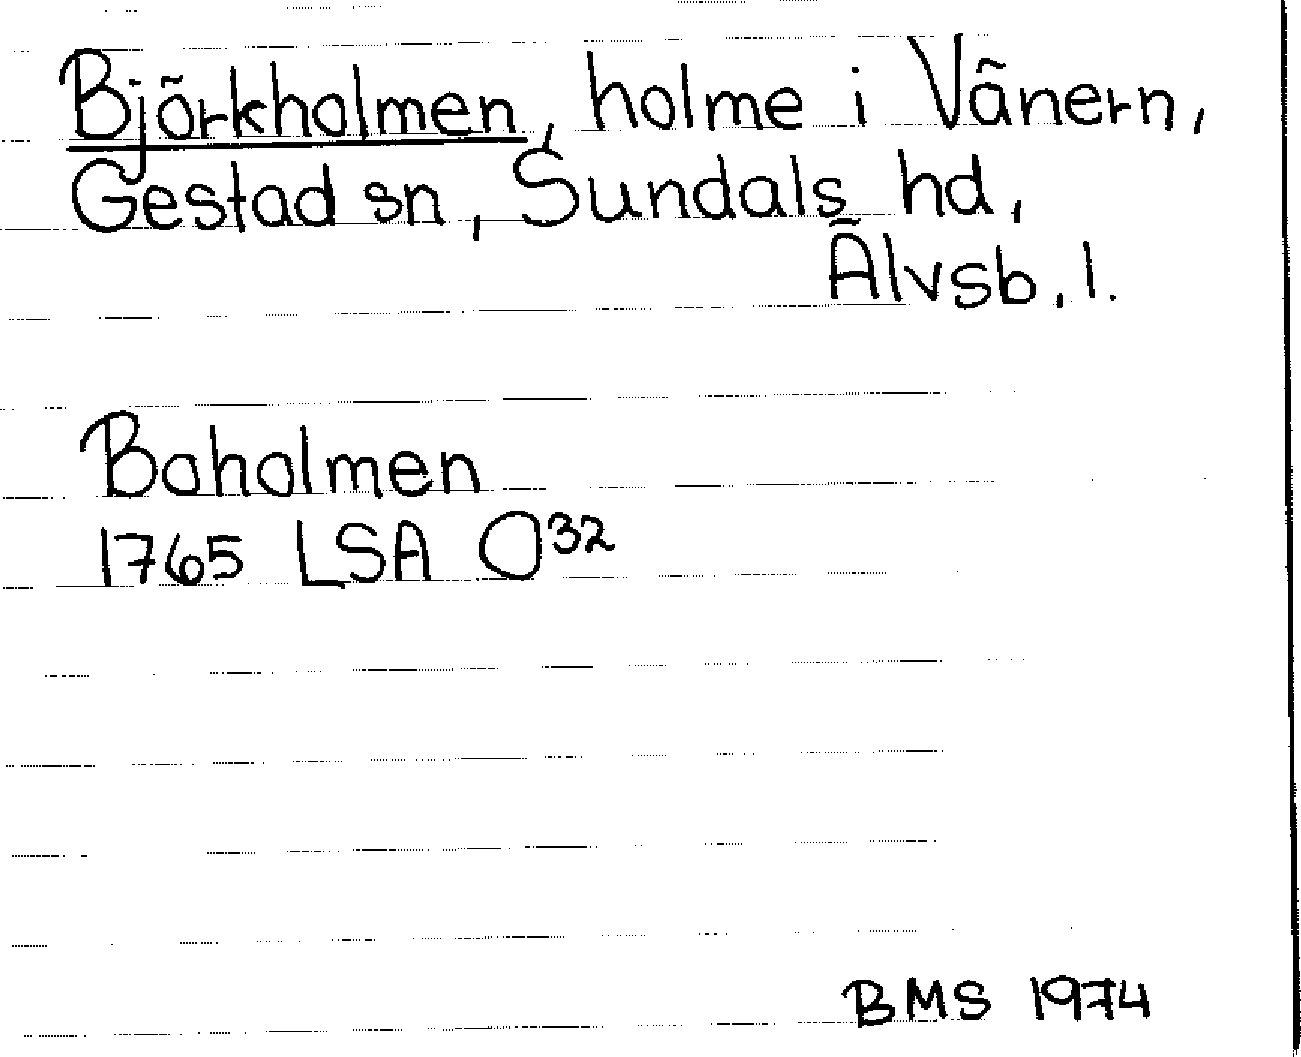 Björkholmen, holme i Vänern,
Gestad sn, Sundals hd,
Älvsb. l.
Boholmen
1765 LSA O32
BMS 1974